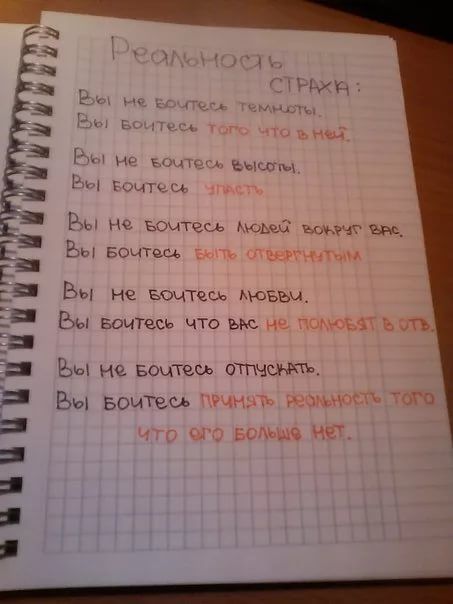 Реальность
СТРАХА:
Вы не боитесь темноты.
Вы боитесь того что в ней.
Вы не боитесь высоты.
Вы боитесь упасть
Вы не боитесь людей вокруг вас.
Вы боитесь быть отвергнутым
Вы не боитесь любви.
Вы боитесь что вас не полюбят в отв.
Вы не боитесь отпускать.
Вы боитесь принять реальность того
что его больше нет.